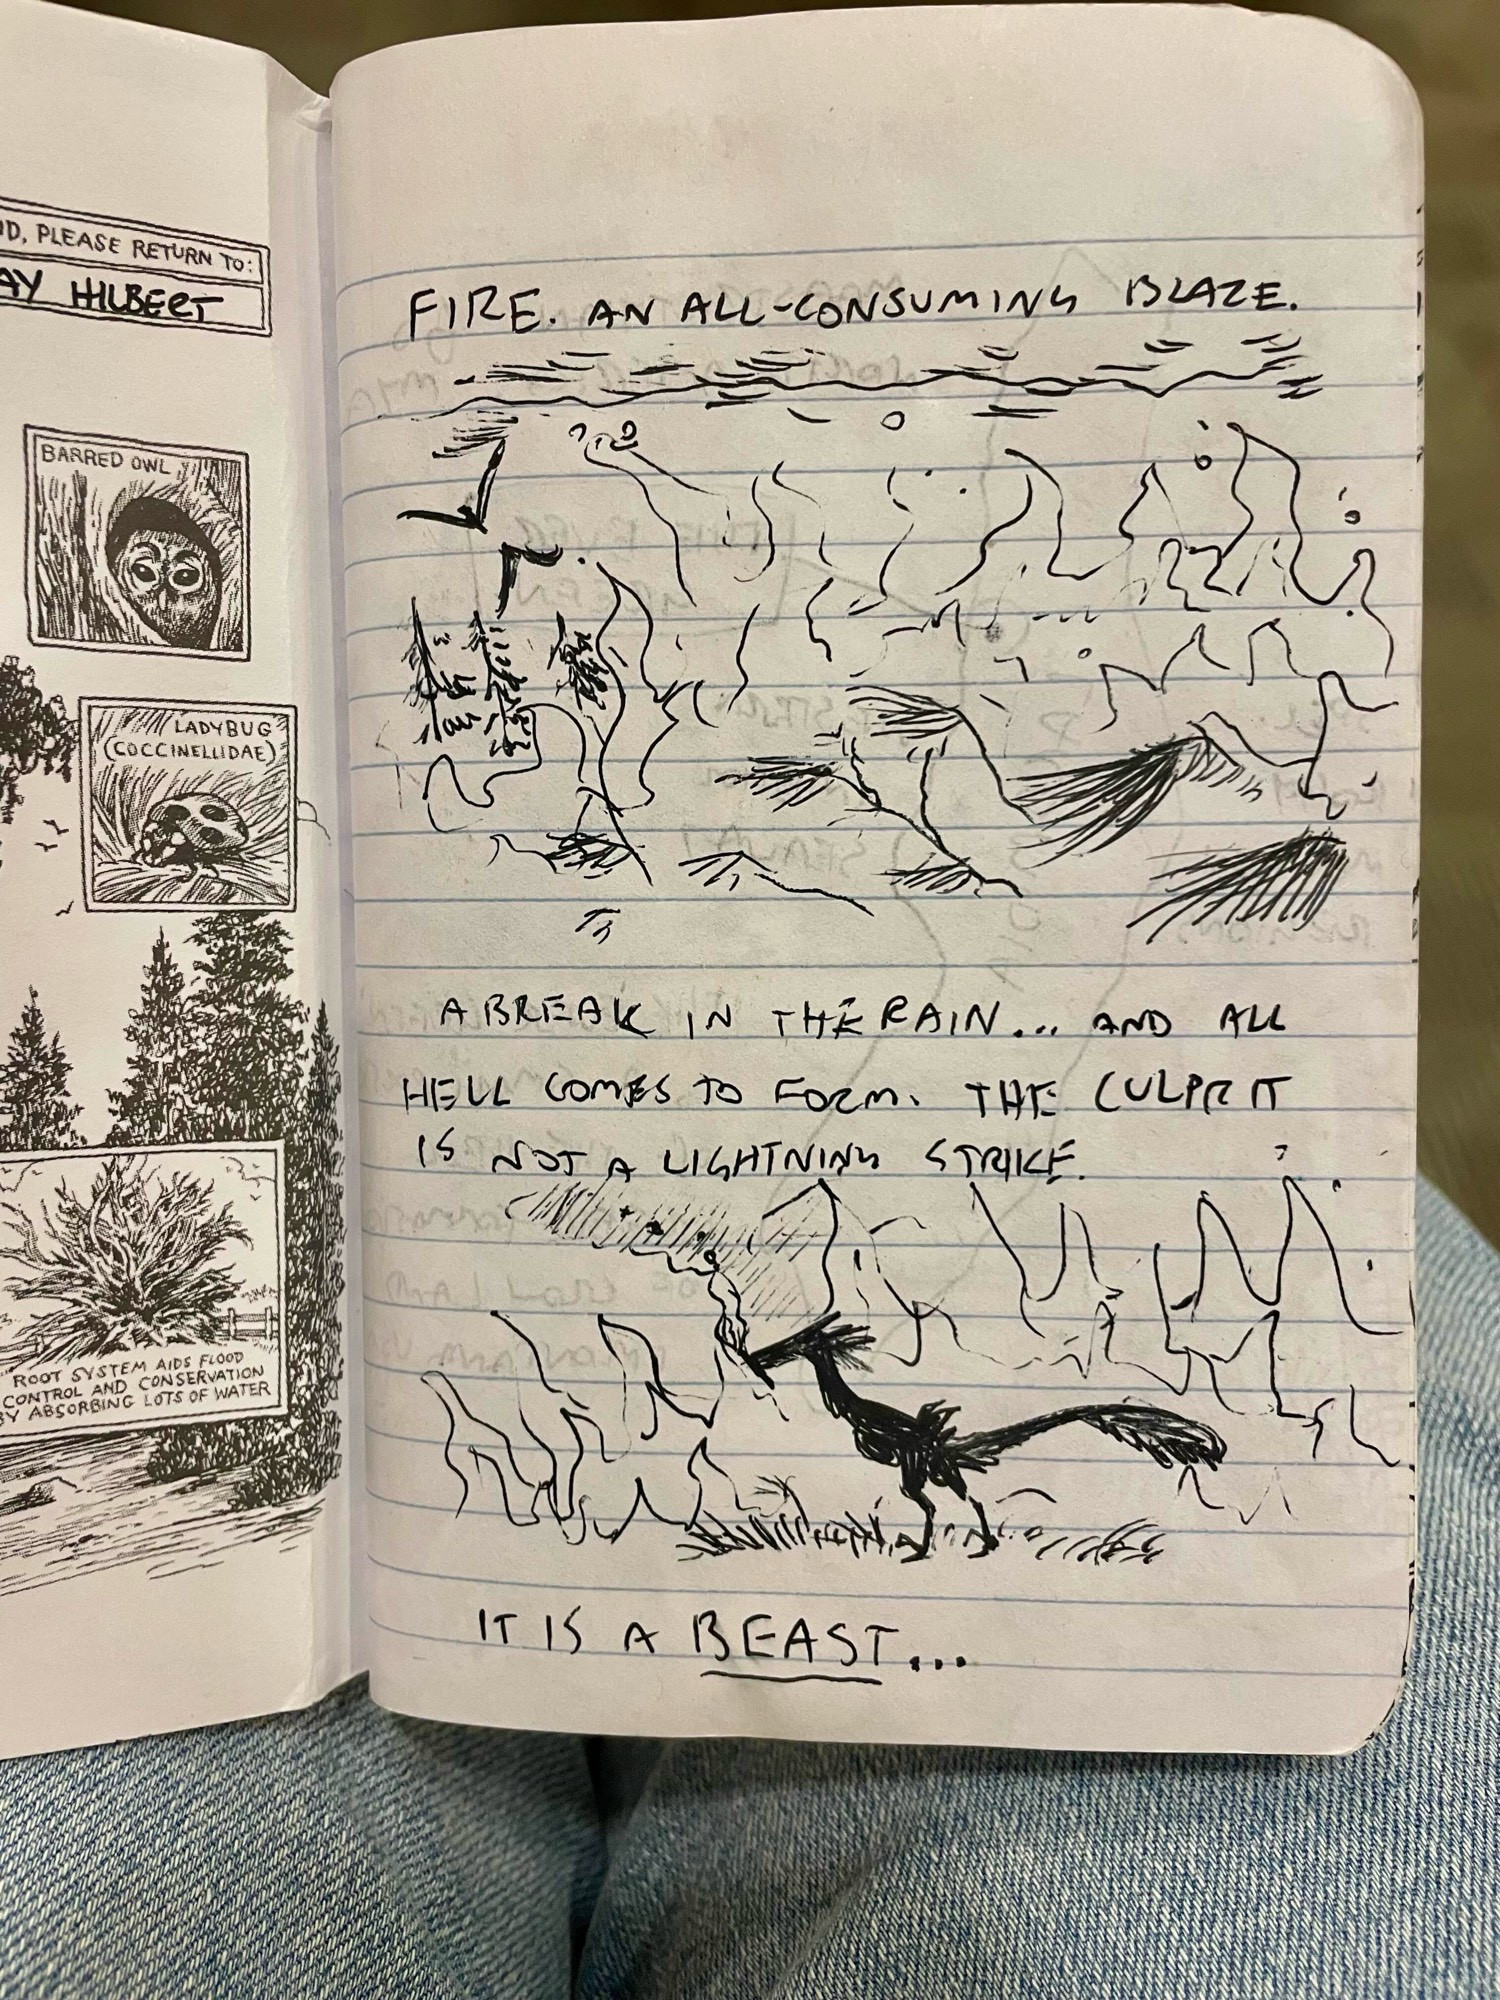 D, PLEASE RETURN TO:
AY HILBERT
BARRED OWL
LADYBUG
(COCCINELLIDAE)
ROOT SYSTEM AIDS FLOOD
CONTROL AND CONSERVATION
BY ABSORBING LOTS OF WATER
FIRE. AN ALL-CONSUMING BLAZE.
A BREAK IN THE RAIN... AND ALL
HELL COMES TO FORM. THE CULPRIT
IS NOT A LIGHTNING STRIKE.
IT IS A BEAST...